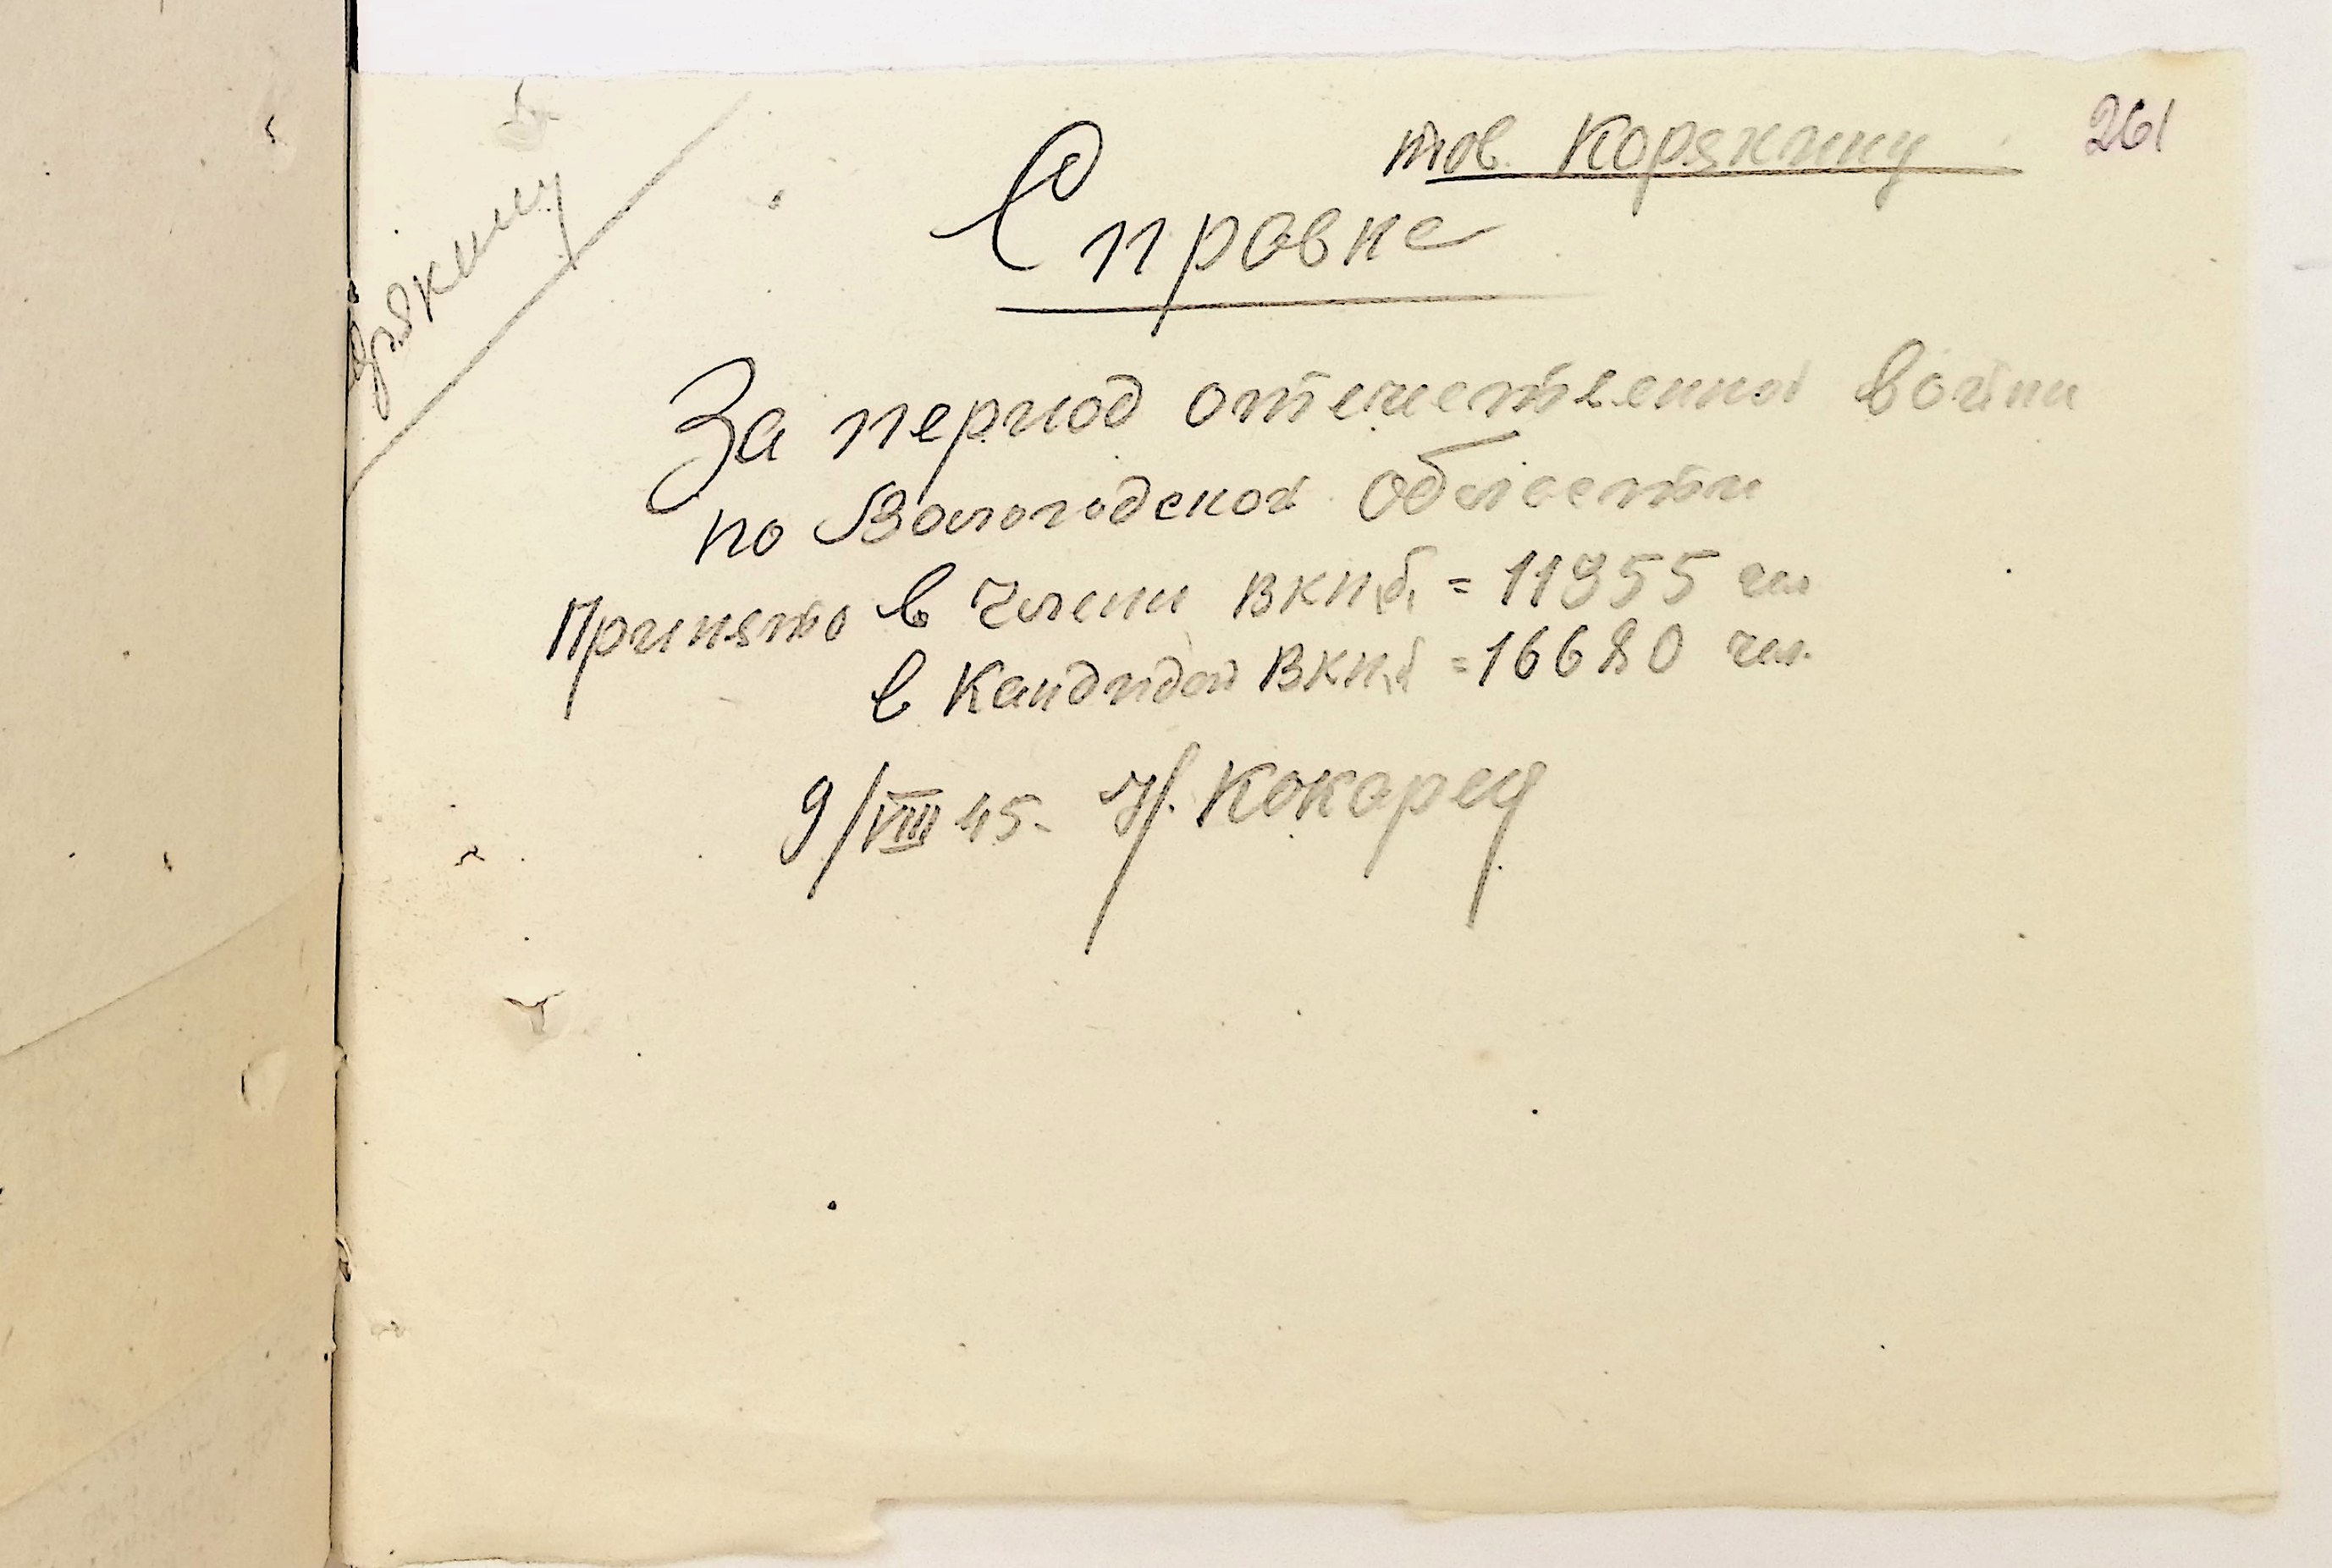 261
тов. Корякину
Справка
За период отечественной войны
по Вологодской области
Принято в члены ВКП(б) = 11955 чел
в кандидаты ВКП(б = 16680 чел.
9/VIII 45-